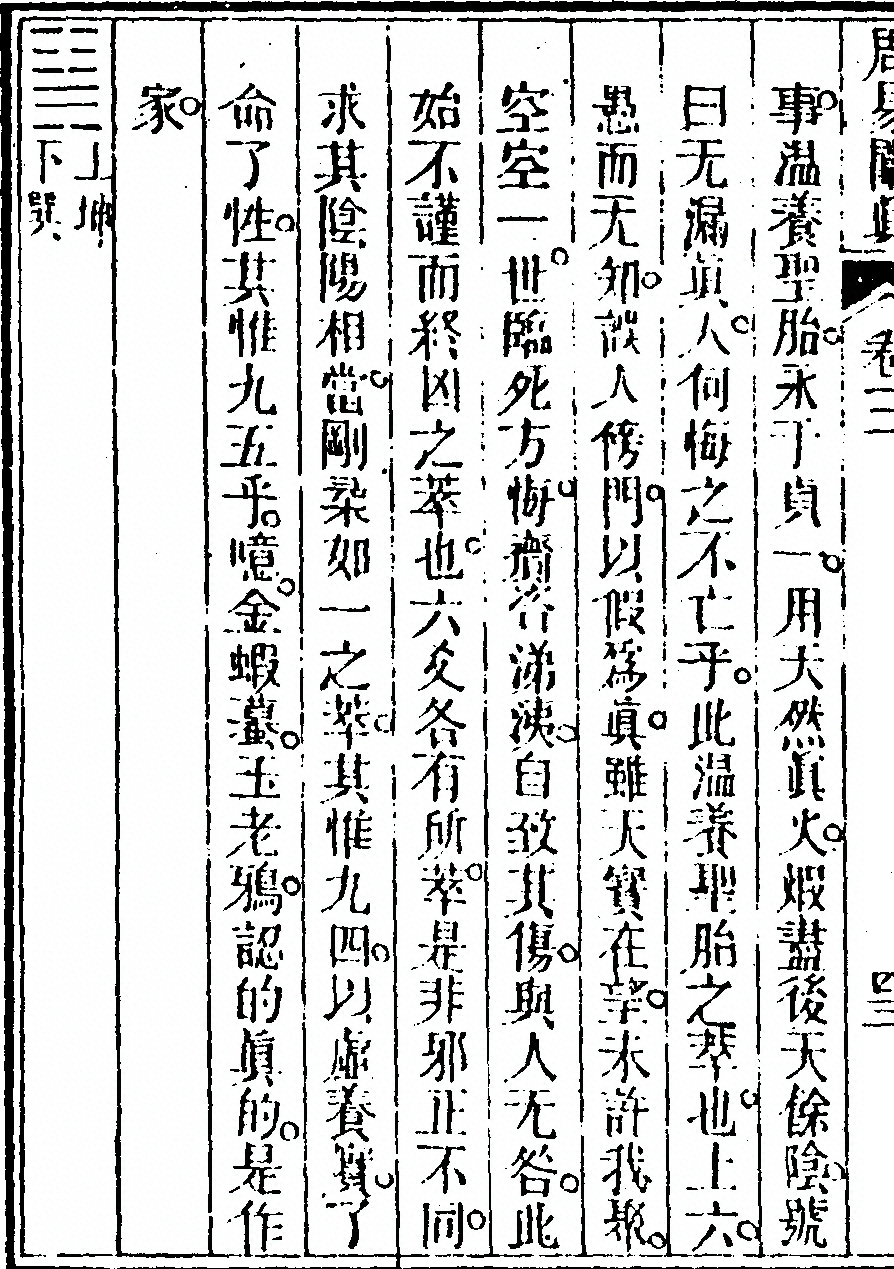 周易闡真 卷二 四三
事溫養聖胎永于貞一用天然真火煅盡後天餘陰號
曰无漏真人何悔之不亡乎此溫養聖胎之萃也上六
愚而无知誤人傍門以假為真雖天寶在望未許我聚
空空一世臨死方悔齎咨涕洟自致其傷與人无咎此
始不謹而終凶之萃也六爻各有所萃是非邪正不同
求其陰陽相當剛柔如一之萃其惟九四以虛養實了
命了性其惟九五乎噫金蝦蟇玉老鴉認的真的是作
家
上坤
下巽